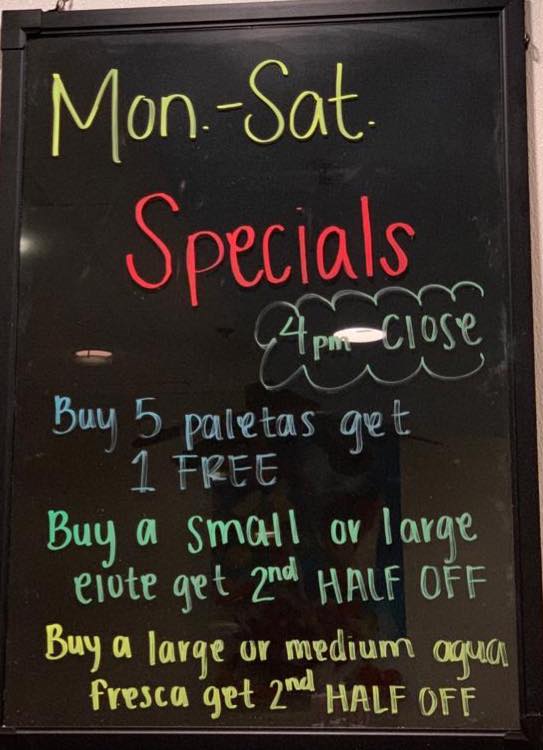 Mon.-Sat.
Specials
4pm - Close
Buy 5 paletas get
1 FREE
Buy a small or large
elote get 2nd HALF OFF
Buy a large or medium agua
fresca get 2nd HALF OFF